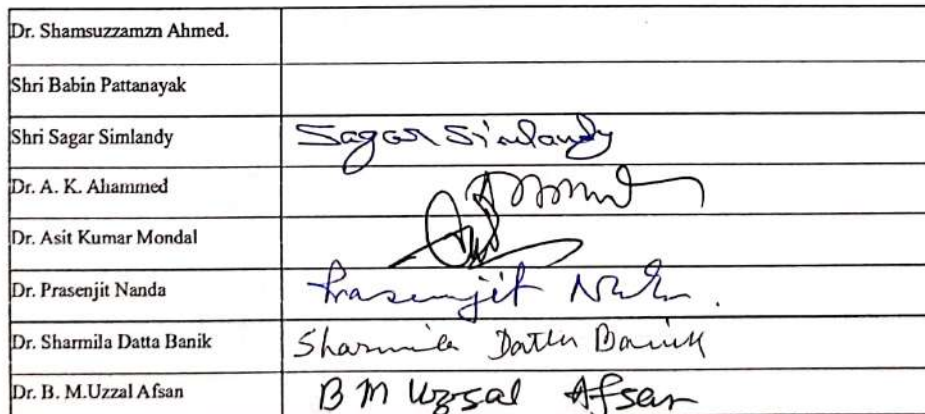 Dr. Shamsuzzamzn Ahmed.
Shri Babin Pattanayak
Shri Sagar Simlandy Sagar Simlandy
Dr. A. K. Ahammed
Dr. Asit Kumar Mondal
Dr. Prasenjit Nanda Prasenjit
Dr. Sharmila Datta Banik Sharmila Datta Banik
Dr. B. M.Uzzal Afsan B M Uzzal Afsan